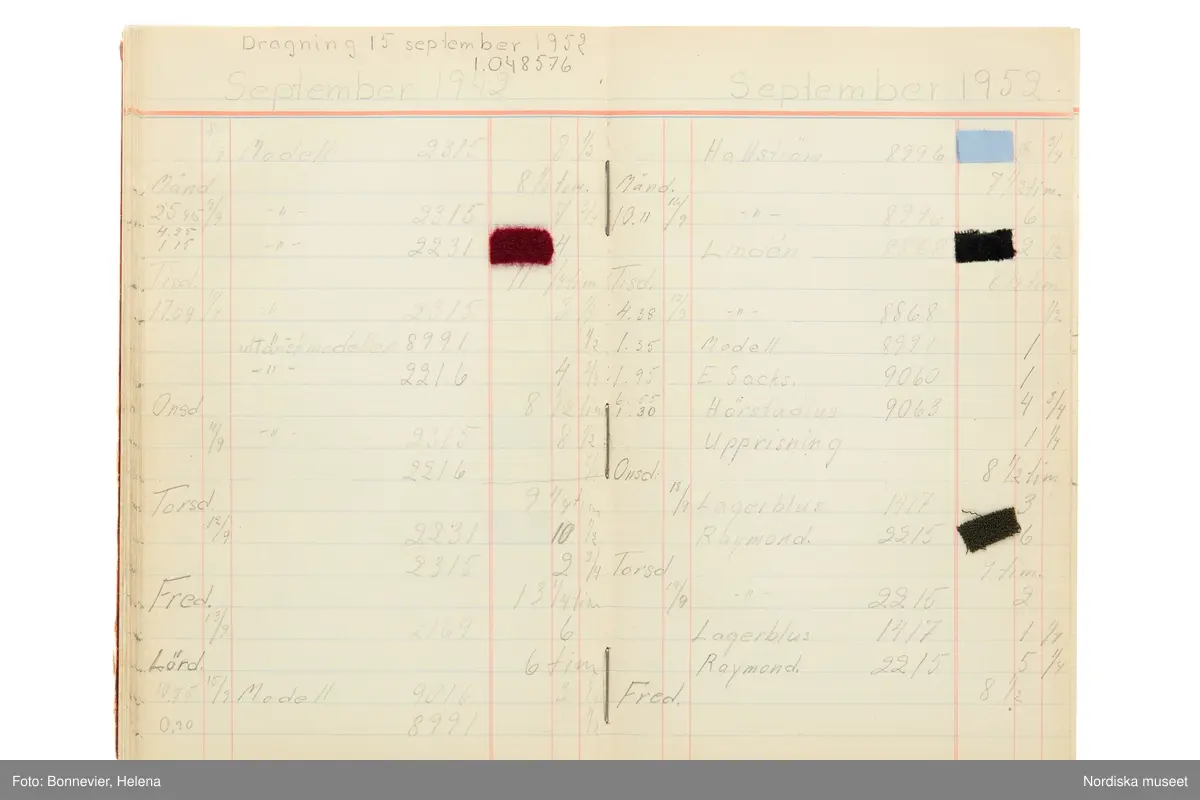 Dragning 15 september 1952
1.048576
September 1942
Modell 2315 8 1/2
Månd. 8 1/2 tim.
25 45 -"- 2315 7
4.25
1 15 -"- 2231 4
Tisd. 11 tim
17.09 -"- 2315 3
modeller 8991 1/2
-"- 2216 4
Onsd. 8 1/2 tim
-"- 2315 8 1/2
2216
Torsd. 9 1/4 tim
12/9 2231 10 1/2
2315 2 3/4
Fred. 13 1/4 tim
13/9 2169 6
Lörd. 6 tim
15/9 Modell 9016 3
0,90 8991
September 1952.
Hallström 8996 3/4
Månd. 7 tim.
10.11 16/9 -"- 8996 6
Lindén 8868 2 1/2
Tisd. 6 tim
4.38 17/9 -"- 8868 1/2
1.35 Modell 8991 1
1.95 E Sacks. 9060 1
1.30 Hårstudius 9063 4 3/4
Upprisning 1 1/4
Onsd. 8 1/2 tim
18/9 Lagerblus 1417 3
Raymond. 2215 6
Torsd 9 tim.
19/9 -"- 2215 2
Lagerblus 1417 1 1/4
Raymond. 2215 5 1/4
Fred. 8 1/2
Foto: Bonnevier, Helena
Nordiska museet